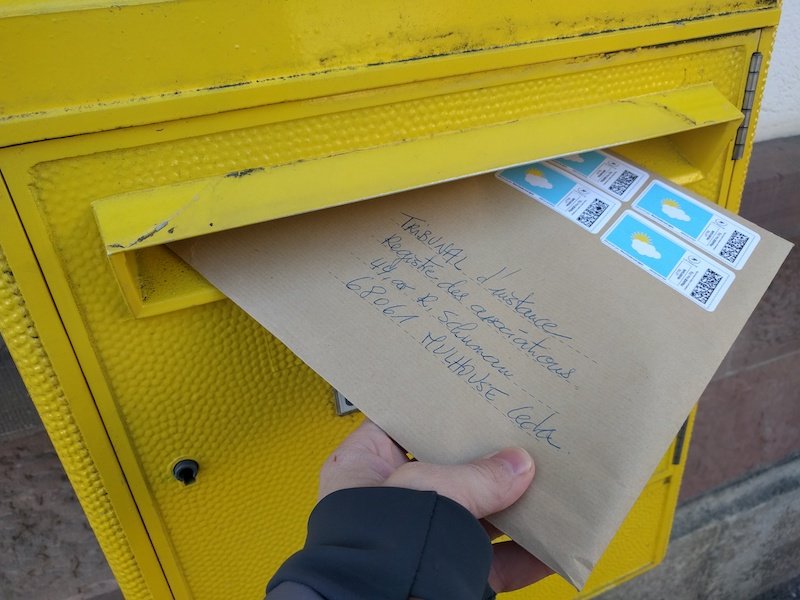 TRIBUNAL d'instance
Registre des associations
44, av R. Schuman
68061 MULHOUSE Cedex